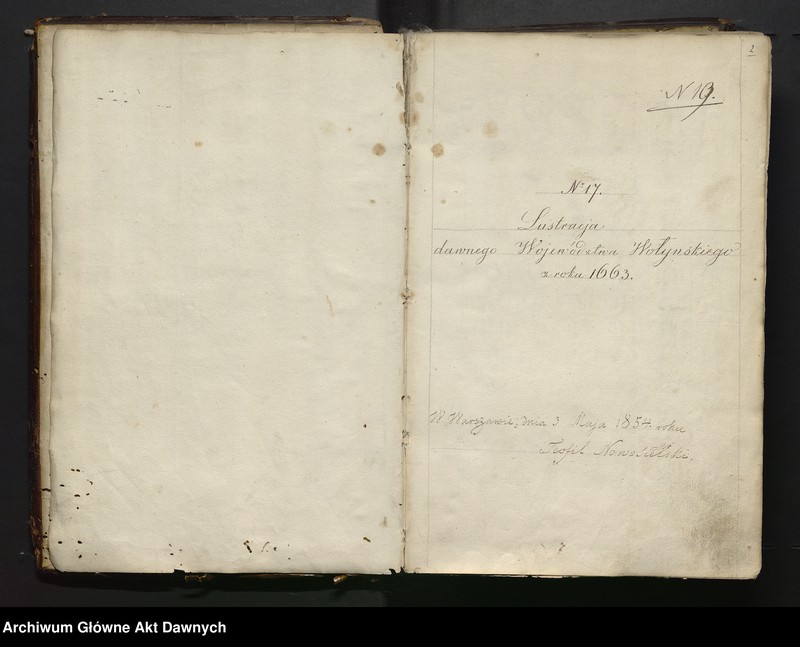 2
N 19.
No 17.
Lustracja
dawnego Województwa Wołyńskiego
z roku 1663.
W Warszawie, dnia 3 Maja 1854 roku
Teofil Nowosielski.
Archiwum Główne Akt Dawnych